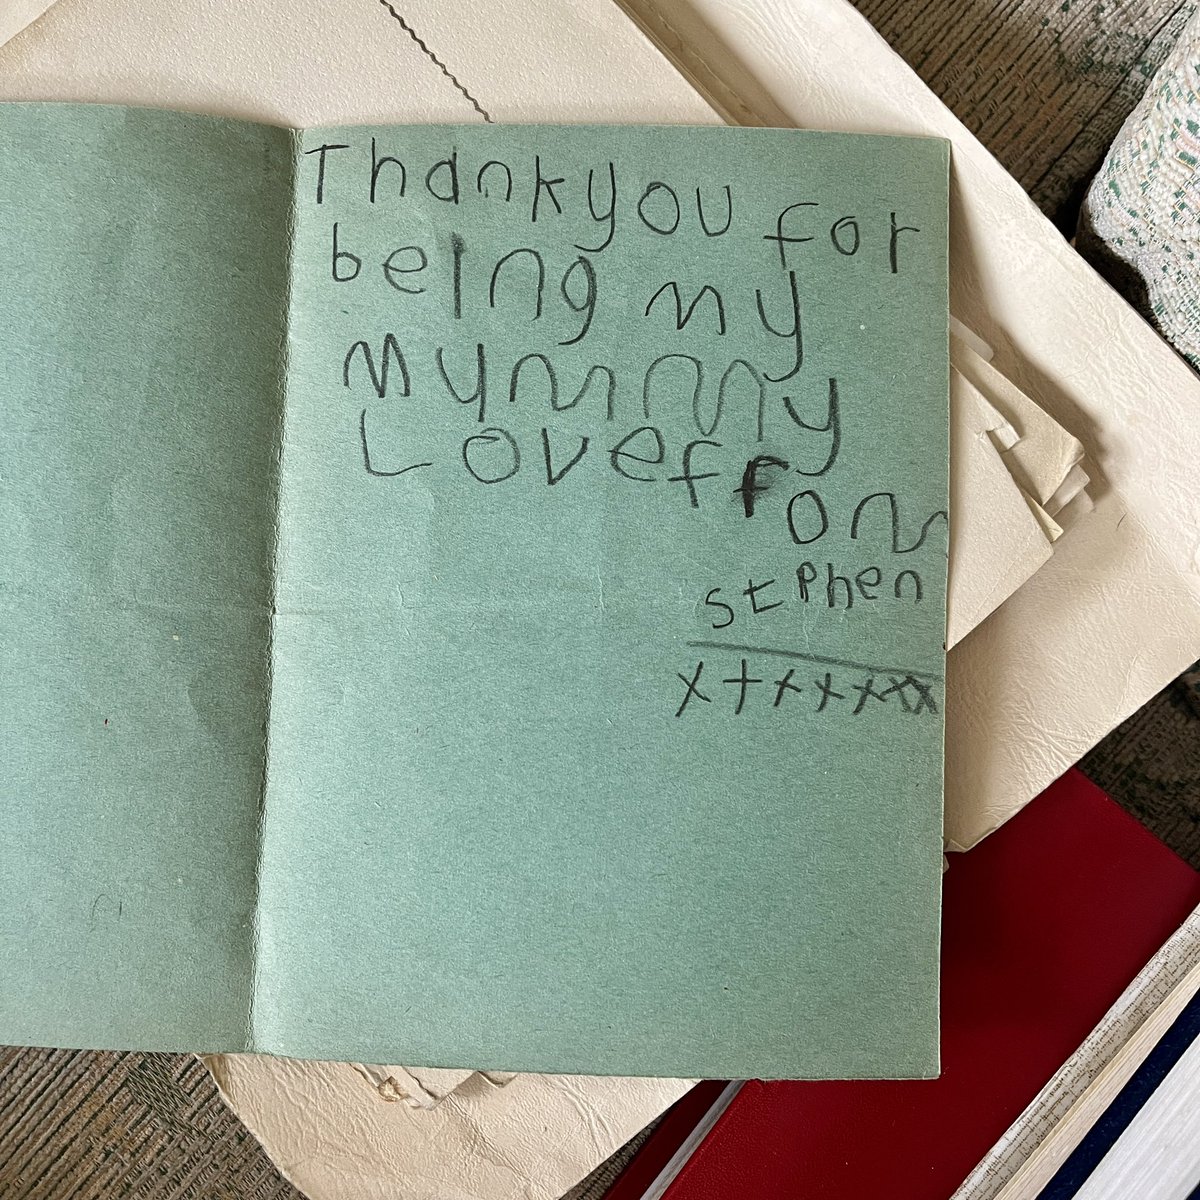 Thankyou for
being my
Mummy
Loveffom
stPhen
x+xxxxxx